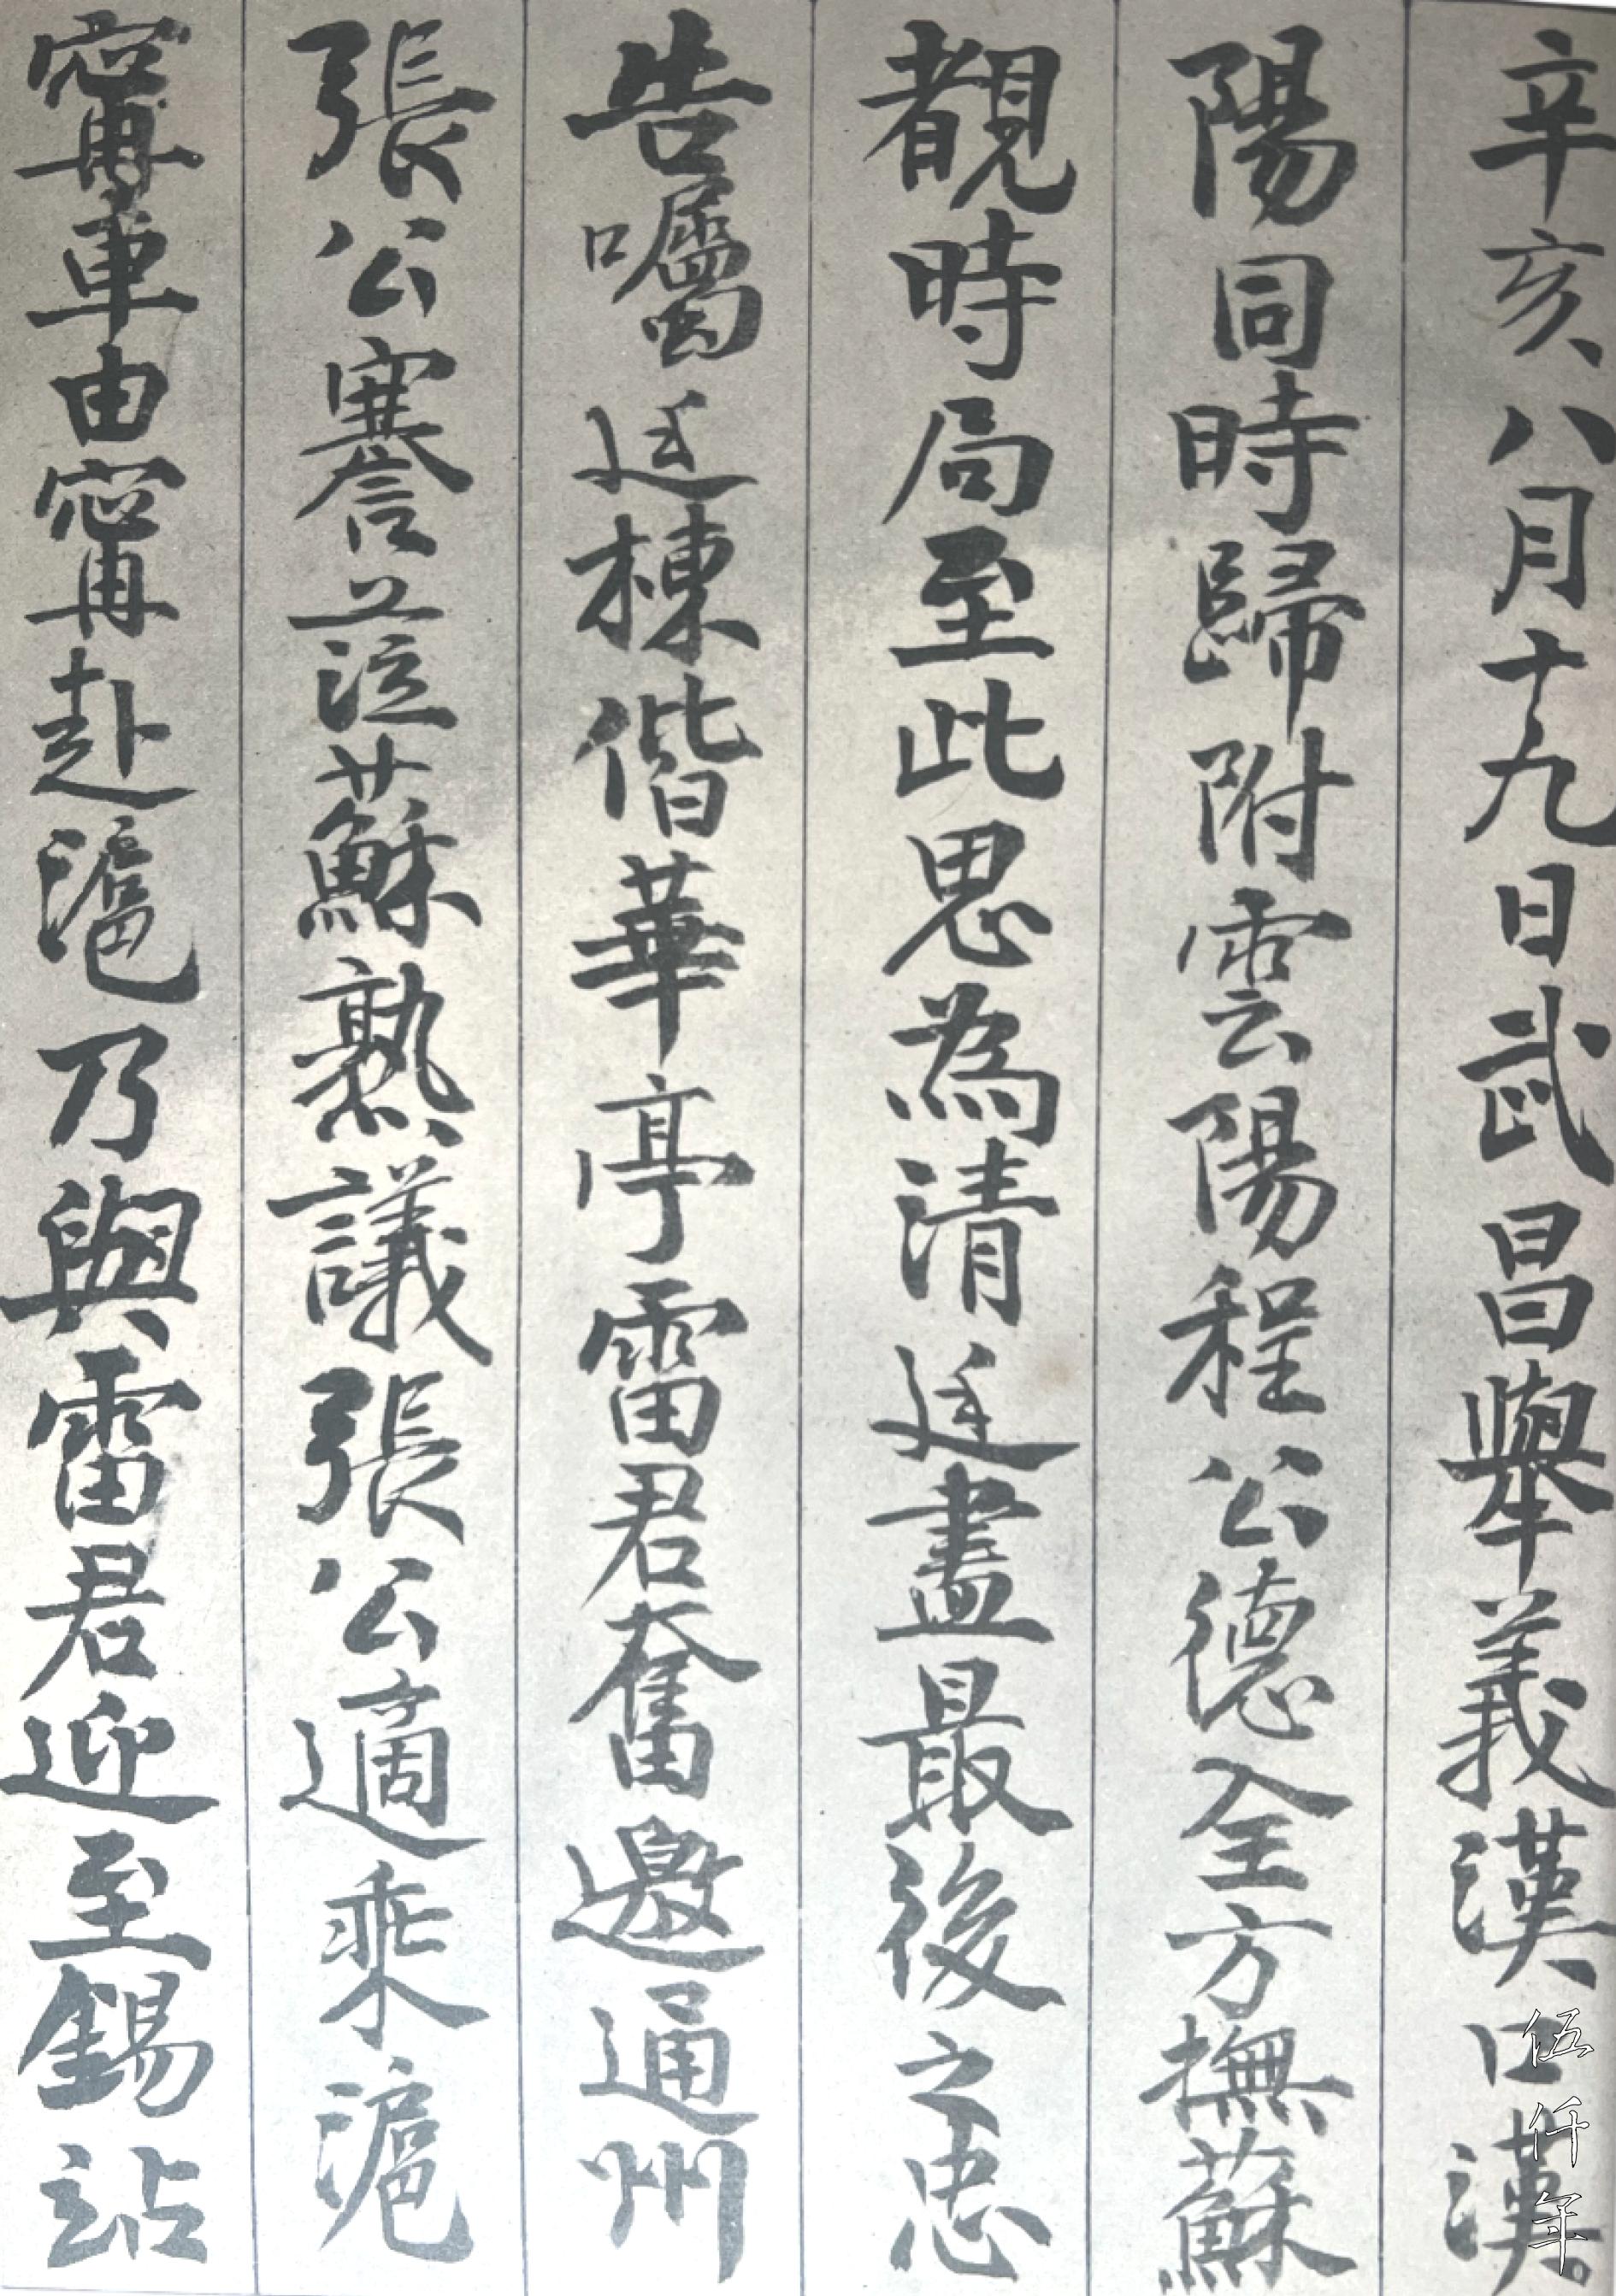 辛亥八月十九日武昌舉義漢口漢
陽同時歸附雲陽程公德全方撫蘇
覩時局至此思為清廷盡最後之忠
告囑廷棟偕華亭雷君奮邀通州
張公謇蒞蘇熟議張公適乘滬
甯車由甯赴滬乃與雷君迎至錫站
伍仟年